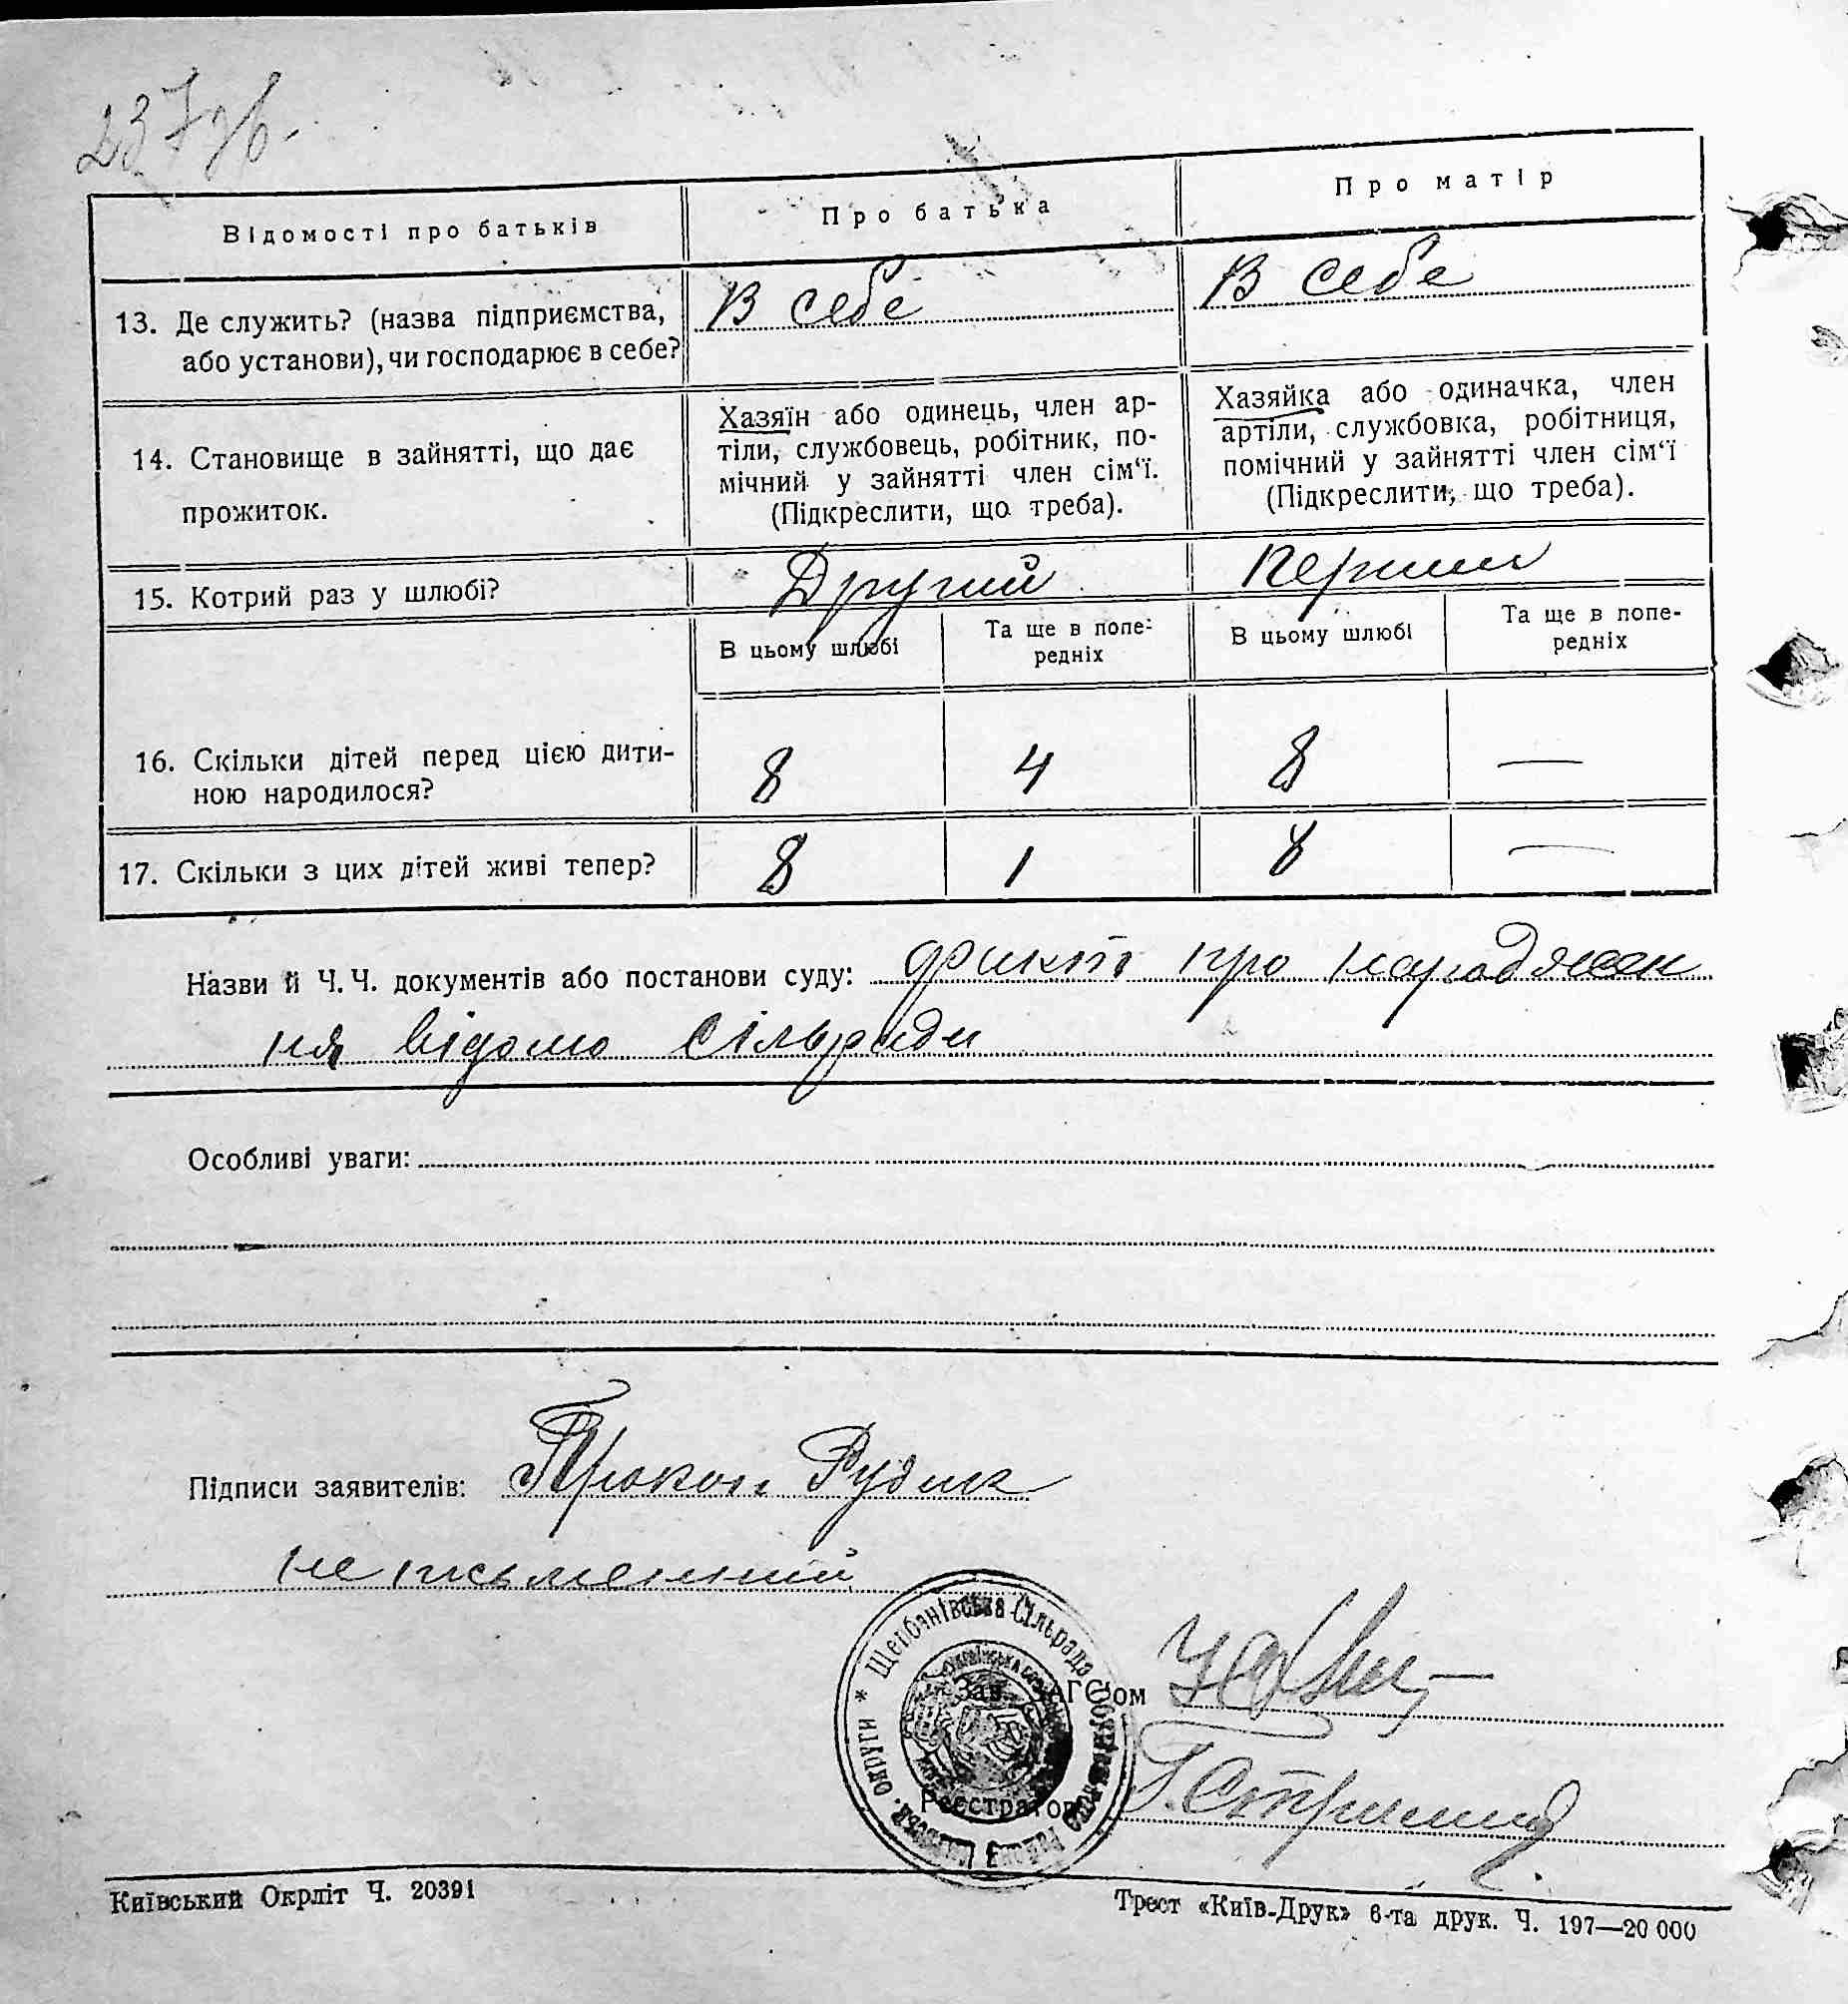 237зв.
Відомості про батьків
Про батька
Про матір
13. Де служить? (назва підприємства, або установи), чи господарює в себе?
В себе
В себе
14. Становище в зайнятті, що дає прожиток.
Хазяїн або одинець, член ар-
тіли, службовець, робітник, по-
мічний у зайнятті член сім‘ї.
(Підкреслити, що треба).
Хазяйка або одиначка, член
артіли, службовка, робітниця,
помічний у зайнятті член сім‘ї
(Підкреслити, що треба).
15. Котрий раз у шлюбі?
Другий
Перший
В цьому шлюбі
Та ще в попе-
редніх
В цьому шлюбі
Та ще в попе-
редніх
16. Скільки дітей перед цією дити-
ною народилося?
8 4 8 —
17. Скільки з цих дітей живі тепер?
8 1 8 —
Назви й Ч. Ч. документів або постанови суду: факт про народжен
ня відомо сільради
Особливі уваги:
Підписи заявителів: Прокоп Рудик
не письменний
Щербанівська Сільрада Обухівського Району Київськ. округи
Зав. ЗАГС'ом
Реєстратор
Київський Окрліт Ч. 20391
Трест «Київ-Друк» 6-та друк. Ч. 197—20 000